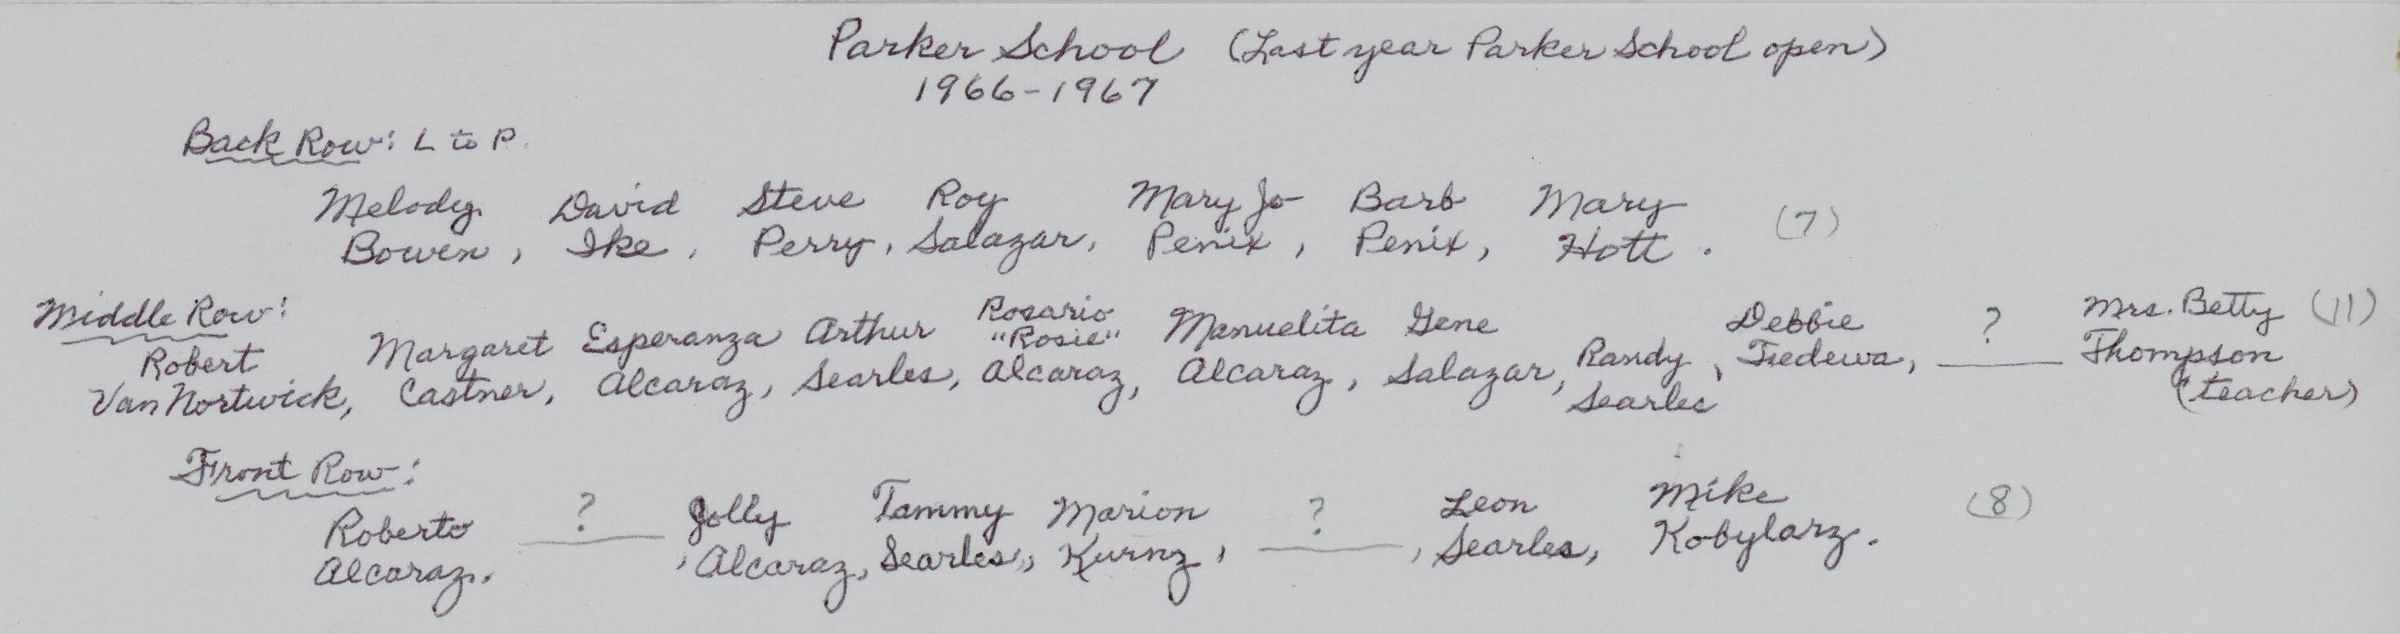 Parker School (Last year Parker School open)
1966-1967
Back Row: L to R.
Melody David Steve Roy Mary Jo Barb Mary (7)
Bowen, Ike, Perry, Salazar, Penix, Penix, Hott.
Middle Row: Rosario Debbie ? Mrs. Betty (11)
Robert Margaret Esperanza Arthur "Rosie" Manuelita Gene Randy, Tredewa, Thompson
Van Nortwick, Castner, Alcaraz, Searles, Alcaraz, Alcaraz, Salazar, Searles (teacher)
Front Row:
Roberto ? Jolly Tammy Marion ? Leon Mike (8)
Alcaraz, , Alcaraz, Searles, Kurnz, , Searles, Kobylarz.